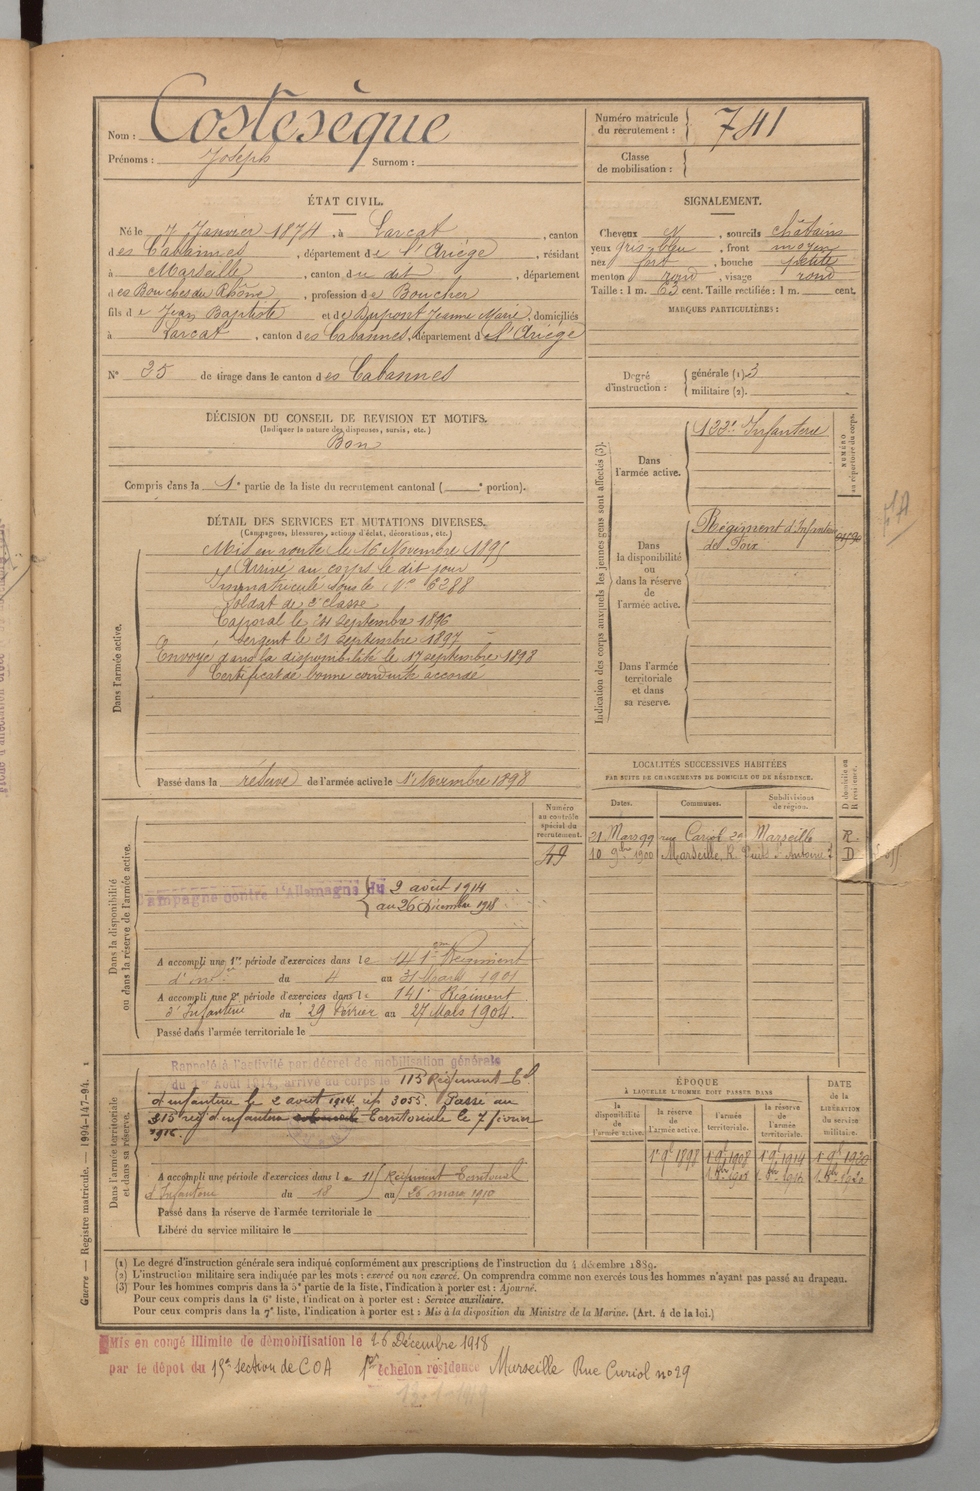 Nom : Costesèque
Prénoms : Joseph Surnom :
Numéro matricule du recrutement : 741
Classe de mobilisation :
ÉTAT CIVIL.
Né le 7 Janvier 1874, à Larcat, canton
des Cabannes, département de l'Ariège, résidant
à Marseille, canton du dit, département
des Bouches du Rhône, profession de Boucher
fils de Jean Baptiste et de Dupont Jeanne Marie, domiciliés
à Larcat, canton des Cabannes, département de l'Ariège
N° 35 de tirage dans le canton des Cabannes
SIGNALEMENT.
Cheveux sourcils châtains
yeux gris bleu, front moyen
nez fort, bouche petite
menton rond, visage rond
Taille : 1 m. 63 cent. Taille rectifiée : 1 m. cent.
MARQUES PARTICULIÈRES :
Degré d'instruction : générale (1). 3
militaire (2).
DÉCISION DU CONSEIL DE REVISION ET MOTIFS.
(Indiquer la nature des dispenses, sursis, etc.)
Bon
Compris dans la 1e partie de la liste du recrutement cantonal ( e portion).
DÉTAIL DES SERVICES ET MUTATIONS DIVERSES.
(Campagnes, blessures, actions d'éclat, décorations, etc.)
Dans l'armée active.
Mis en route le 16 Novembre 1895
Arrivé au corps le dit jour
Immatriculé sous le N° 6288
Soldat de 2e classe
Caporal le 24 septembre 1896
Sergent le 21 septembre 1897
Envoyé dans la disponibilité le 17 septembre 1898
Certificat de bonne conduite accordé
Passé dans la réserve de l'armée active le 1er Novembre 1898
Indication des corps auxquels les jeunes gens sont affectés (3).
NUMÉRO au répertoire du corps.
Dans l'armée active.
122e Infanterie
Dans la disponibilité ou dans la réserve de l'armée active.
Régiment d'Infanterie
de Foix
Dans l'armée territoriale et dans sa réserve.
LOCALITÉS SUCCESSIVES HABITÉES
PAR SUITE DE CHANGEMENTS DE DOMICILE OU DE RÉSIDENCE.
Dates. Communes. Subdivisions de région. D domicile ou R résidence.
21 Mars 99 rue Marseille R
10 9bre 1900 Marseille, R. Puits St Antoine D
Dans la disponibilité ou dans la réserve de l'armée active.
Numéro au contrôle spécial du recrutement.
49
Campagne contre l'Allemagne du 2 août 1914
au 26 Décembre 1918
A accompli une 1re période d'exercices dans le 141ème Régiment
d'infie du 4 au 31 Mars 1901
A accompli une 2e période d'exercices dans le 141e Régiment
d'Infanterie du 29 Février au 27 Mars 1904
Passé dans l'armée territoriale le
Dans l'armée territoriale et dans sa réserve.
Rappelé à l'activité par décret de mobilisation générale
du 1er Août 1914, arrivé au corps le 115 Régiment Tal
d'infanterie le 2 août 1914, rép 3055. Passé au
315e rég d'infanterie Territoriale le 7 février
1916.
A accompli une période d'exercices dans le 115 Régiment Territorial
d'Infanterie du 18 au 26 mars 1910
Passé dans la réserve de l'armée territoriale le
Libéré du service militaire le
ÉPOQUE
À LAQUELLE L'HOMME DOIT PASSER DANS
la disponibilité de l'armée active. la réserve de l'armée active. l'armée territoriale. la réserve de l'armée territoriale.
DATE de la LIBÉRATION du service militaire.
1er 9bre 1898 1er 9bre 1908 1er 9bre 1914 1er 9bre 1920
(1) Le degré d'instruction générale sera indiqué conformément aux prescriptions de l'instruction du 4 décembre 1889.
(2) L'instruction militaire sera indiquée par les mots : exercé ou non exercé. On comprendra comme non exercés tous les hommes n'ayant pas passé au drapeau.
(3) Pour les hommes compris dans la 5e partie de la liste, l'indication à porter est : Ajourné.
Pour ceux compris dans la 6e liste, l'indication à porter est : Service auxiliaire.
Pour ceux compris dans la 7e liste, l'indication à porter est : Mis à la disposition du Ministre de la Marine. (Art. 4 de la loi.)
Guerre — Registre matricule. — 1994-147-94. 1
Mis en congé illimité de démobilisation le 26 Décembre 1918
par le dépôt du 15e section de COA 1er échelon résidence Marseille Rue Curiol no 29